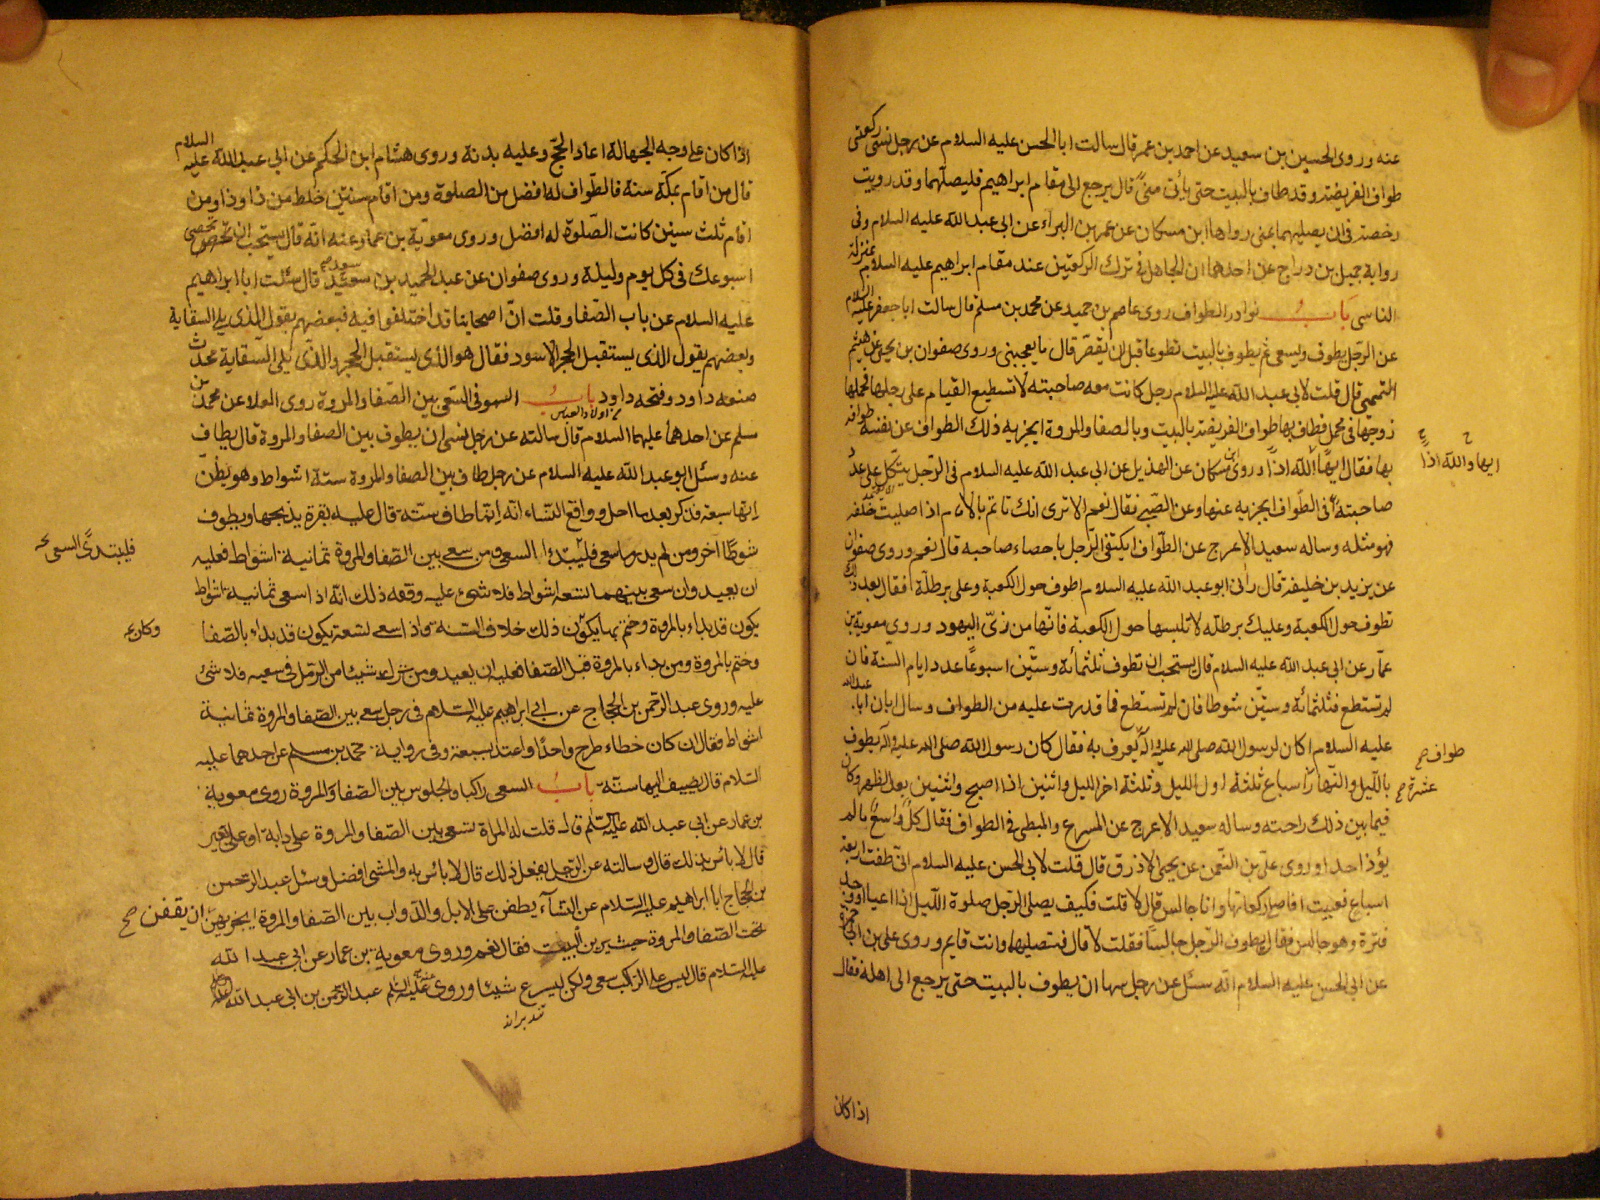 عنه وروى الحسين بن سعيد عن احمد بن عمر قال سالت ابا الحسن عليه السلام عن رجل نسى ركعتى
طواف الفريضة وقد طاف بالبيت حتى ياتى منى قال يرجع الى مقام ابراهيم فليصلهما وقد رويت
رخصة فى ان يصليهما بمنى رواها ابن مسكان عن عمر بن البراء عن ابى عبد الله عليه السلام وفى
رواية جميل بن دراج عن احدهما ان الجاهل فى ترك الركعتين عند مقام ابراهيم عليه السلام بمنزلة
الناسى باب نوادر الطواف روى عاصم بن حميد عن محمد بن مسلم قال سالت ابا جعفر عليه السلام
عن الرجل يطوف ويسعى ثم يطوف بالبيت تطوعا قبل ان يقصر قال ما يعجبنى وروى صفوان بن يحيى عن هيثم
التميمى قال قلت لابى عبد الله عليه السلام رجل كانت معه صاحبته لا تستطيع القيام على رجلها فحملها
زوجها فى محمل فطاف بها طواف الفريضة بالبيت وبالصفا والمروة ايجزيه ذلك الطواف عن نفسه طوافه
بها فقال ايها الله اذا وروى ابن مسكان عن الهذيل عن ابى عبد الله عليه السلام فى الرجل يتكل على عدد
ايها والله اذا
صاحبته فى الطواف ايجزيه عنها وعن الصبى فقال نعم الا ترى انك تاتم بالامام اذا صليت خلفه
فهو مثله وساله سعيد الاعرج عن الطواف ايكتفى الرجل باحصاء صاحبه قال نعم وروى صفوان
عن يزيد بن خليفة قال رانى ابو عبد الله عليه السلام اطوف حول الكعبة وعلى برطلة فقال بعد ذلك
تطوف حول الكعبة وعليك برطلة لا تلبسها حول الكعبة فانها من زى اليهود وروى معوية بن
عمار عن ابى عبد الله عليه السلام قال يستحب ان تطوف ثلثمائة وستين اسبوعا عدد ايام السنة فان
لم تستطع فثلثمائة وستين شوطا فان لم تستطع فما قدرت عليه من الطواف وسال ابان ابا عبد الله
عليه السلام اكان لرسول الله صلى الله عليه واله يعرف به فقال كان رسول الله صلى الله عليه واله يطوف
طواف صح
بالليل والنهار اسباع ثلثة اول الليل وثلثة اخر الليل واثنين اذا اصبح واثنين بعد الظهر وكان
عشرة صح
فيما بين ذلك راحته وساله سعيد الاعرج عن المسرع والمبطى فى الطواف فقال كل واسع ما لم
يؤذ احدا وروى على بن النعمن عن يحيى الازرق قال قلت لابى الحسن عليه السلام انى طفت اربعة
اسباع فعييت افاصلى ركعاتها وانا جالس قال لا قلت فكيف يصلى الرجل صلوة الليل اذا اعيا او وجد
فترة وهو جالس فقال يطوف الرجل جالسا فقلت لا قال فتصليها وانت قايم وروى على بن ابى حمزة
عن ابى الحسن عليه السلام انه سئل عن رجل سها ان يطوف بالبيت حتى يرجع الى اهله فقال
اذا كان
اذا كان على وجه الجهالة اعاد الحج وعليه بدنة وروى هشام ابن الحكم عن ابى عبد الله عليه السلام
قال من اقام بمكة سنة فالطواف له افضل من الصلوة ومن اقام سنتين خلط من ذا وذا ومن
اقام ثلث سنين كانت الصلوة له افضل وروى معوية بن عمار وعنه انه قال يستحب ان تحصى
اسبوعك فى كل يوم وليلة وروى صفوان عن عبد الحميد بن سعيد قال سئلت ابا ابراهيم
عليه السلام عن باب الصفا وقلت ان اصحابنا قد اختلفوا فيه فبعضهم يقول الذى يلى السقاية
وبعضهم يقول الذى يستقبل الحجر الاسود فقال هو الذى يستقبل الحجر والذى يلى السقاية محدث
صنعه داود وفتحه داود باب السهو فى السعى بين الصفا والمروة روى العلا عن محمد بن
من اولاد العباس
مسلم عن احدهما عليهما السلام قال سالته عن رجل نسى ان يطوف بين الصفا والمروة قال يطاف
عنه وسئل ابو عبد الله عليه السلام عن رجل طاف بين الصفا والمروة ستة اشواط وهو يظن
انها سبعة فذكر بعد ما احل وواقع النساء انه انما طاف ستة قال عليه بقرة يذبحها ويطوف
شوطا اخر ومن لم يدر ما سعى فليبتدا السعى ومن سعى بين الصفا والمروة ثمانية اشواط فعليه
فليبتدئ السعى
ان يعيد وان سعى بينهما تسعة اشواط فلا شئ عليه وفقه ذلك انه اذا سعى ثمانية اشواط
يكون قد بداء بالمروة وختم بها يكون ذلك خلاف السنة واذا سعى تسعة يكون قد بداء بالصفا
وكان
وختم بالمروة ومن بداء بالمروة قبل الصفا فعليه ان يعيد ومن ترك شيئا من الرمل فى سعيه فلا شئ
عليه وروى عبد الرحمن بن الحجاج عن ابى ابراهيم عليه السلام فى رجل سعى بين الصفا والمروة ثمانية
اشواط فقال ان كان خطاء طرح واحدا واعتد بسبعة وفى رواية محمد بن مسلم عن احدهما عليه
السلام قال يضيف اليها ستة باب السعى راكبا والجلوس بين الصفا والمروة روى معوية
بن عمار عن ابى عبد الله عليه السلم قال قلت له المراة تسعى بين الصفا والمروة على دابة او على بعير
قال لا باس بذلك قال وسالته عن الرجل يفعل ذلك قال لا باس به والمشى افضل وسئل عبد الرحمن
بن الحجاج ابا ابراهيم عليه السلام عن النساء يطفن على الابل والدواب بين الصفا والمروة ايجزيهن ان يقفن صح
تحت الصفا والمروة حيث يرين البيت فقال نعم وروى معوية بن عمار عن ابى عبد الله
عليه السلام قال ليس على الراكب سعى ولكن ليسرع شيئا وروى عنه عليه السلم عبد الرحمن بن ابى عبد الله